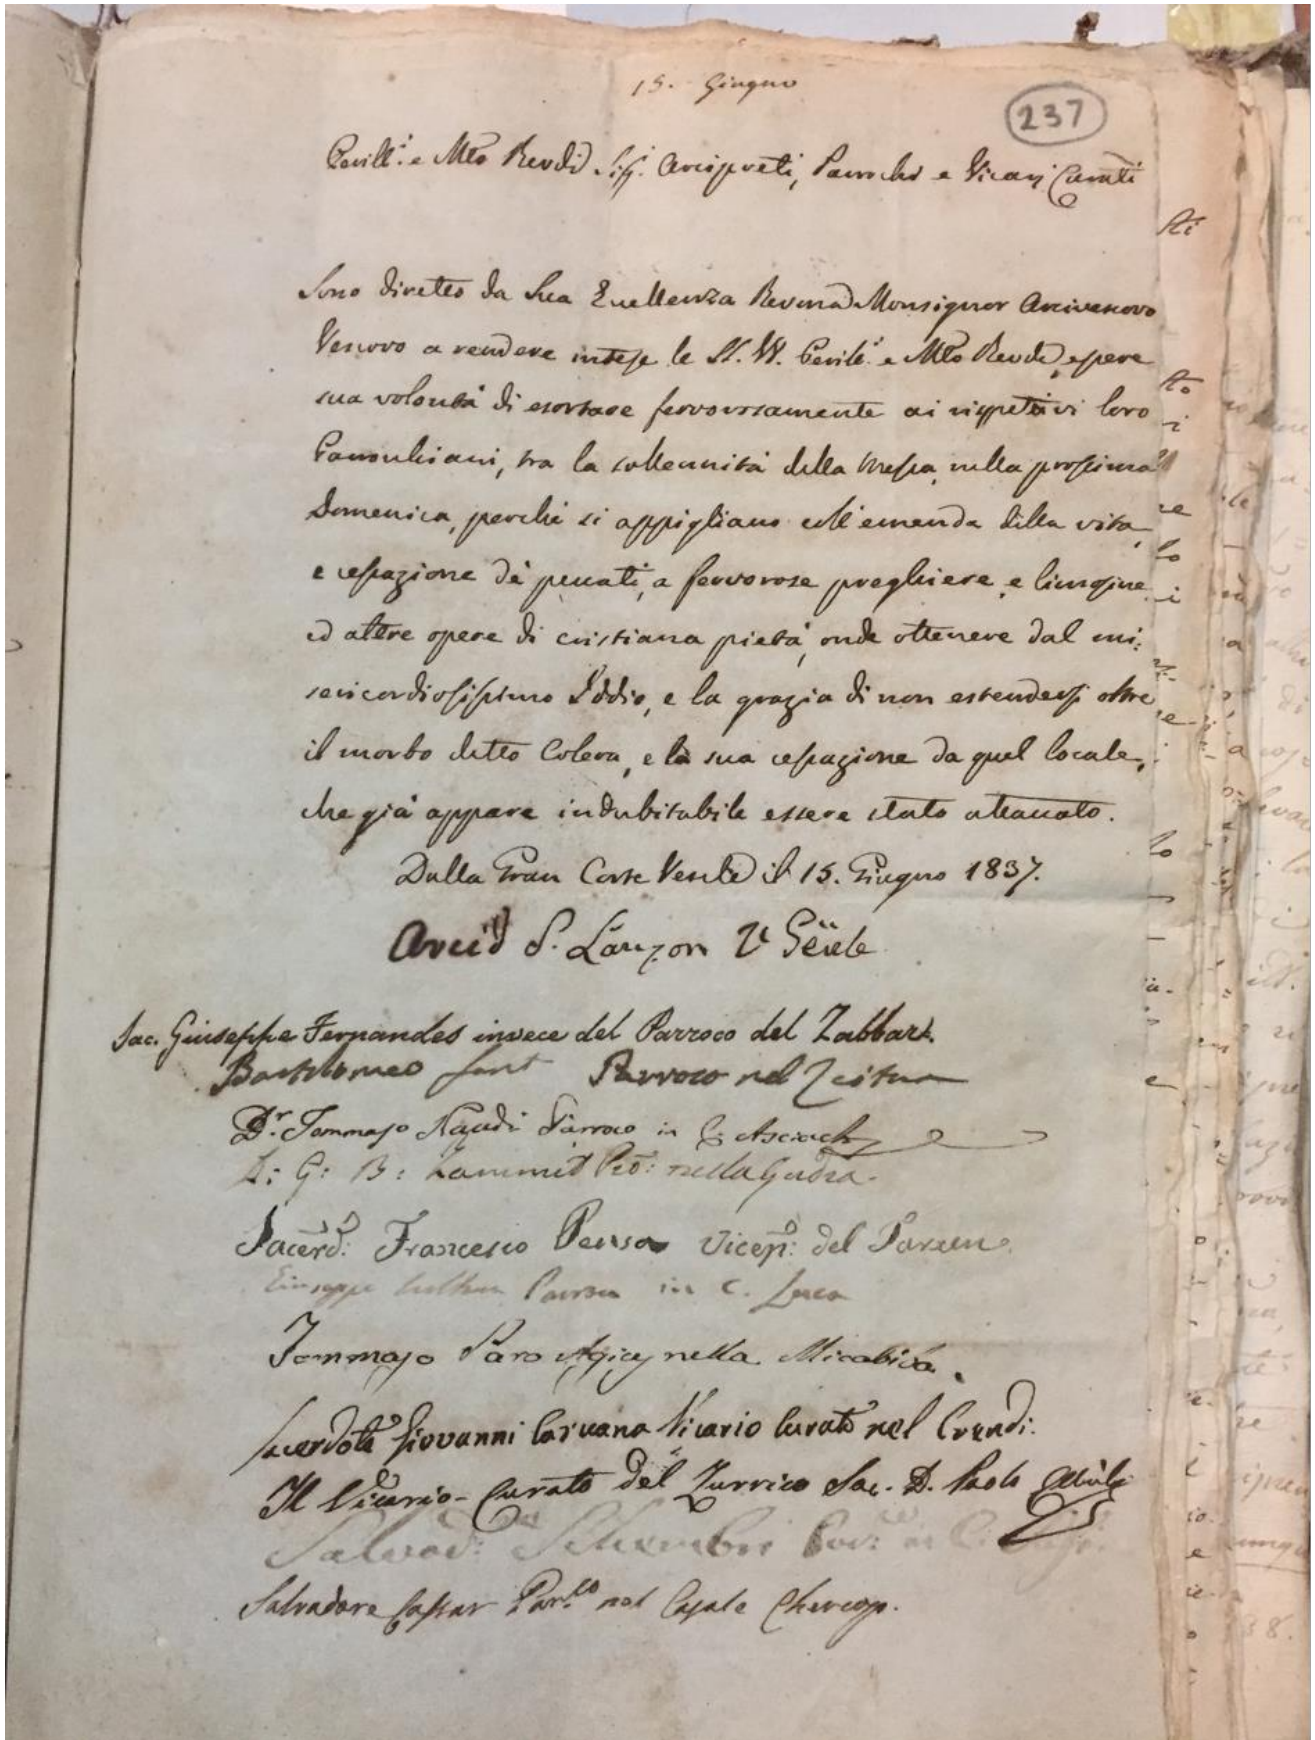 15. Giugno
237
Perill.i e Mto Revdi Sig.i Arcipreti, Parrochi e Vicarj Curati
Sono diretto da Sua Eccellenza Revma Monsignor Arcivescovo
Vescovo a rendere intese le SS. VV. Perill.i e Mto Revde, essere
sua volontà di esortare fervorosamente ai rispettivi loro
Parrochiani, tra la sollennità della Messa, nella prossima
Domenica, perchè si appigliano coll'emenda della vita,
e cessazione de' peccati, a fervorose preghiere, e limosine
ed altre opere di cristiana pietà, onde ottenere dal mi:
sericordiosissimo Iddio, e la grazia di non estendersi oltre
il morbo detto Colera, e la sua cessazione da quel locale,
che già appare indubitabile essere stato attaccato.
Dalla Gran Corte Vescle il 15. Giugno 1837.
Arcid S. Lanzon V Genle
Sac. Giuseppe Fernandes invece del Parroco del Zabbar.
Bartolomeo Sant Parroco nel Zeitun
Dr. Tommaso Naudi Parroco in C. Asciach
D: G: B: Zammit Pro: nella Gudia.
Sacerd: Francesco Penza Vicep: del Tarxen.
Giuseppe Parroco in C. Luca
Tommaso Paro nella Micabiba.
Sacerdote Giovanni Caruana Vicario Curato nel Crendi.
Il Vicario-Curato del Zurrico Sac. D. Paolo
Salvad: Schembri
Salvadore Cassar Par.co nel Casale Chercop.